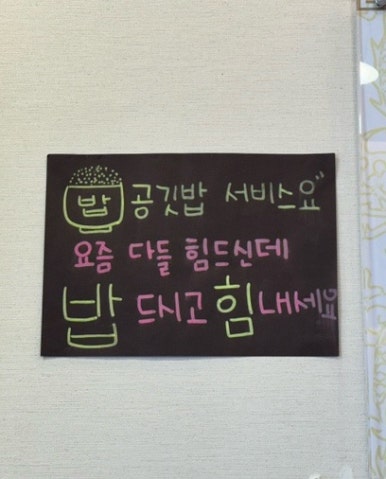 밥 공깃밥 서비스요~
요즘 다들 힘드신데
밥 드시고 힘내세요